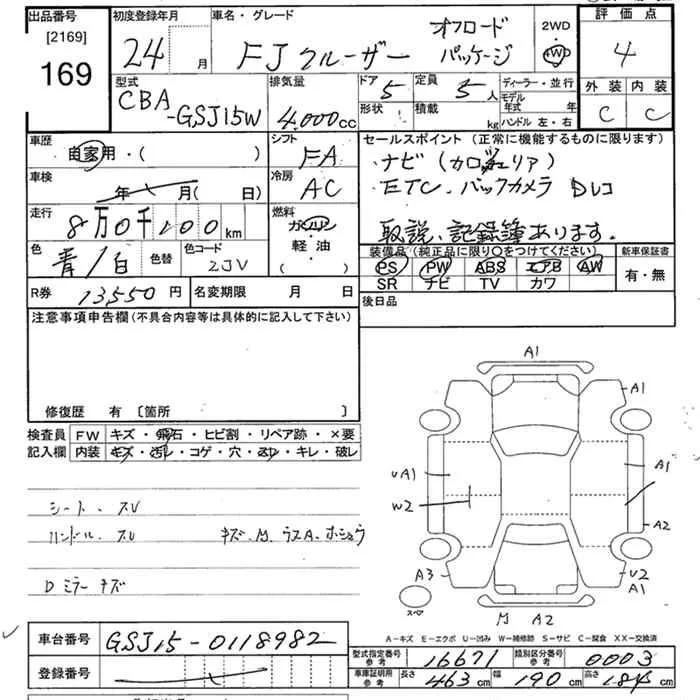 出品番号 初度登録年月 車名・グレード 評価点
[2169]
169
24 月 FJクルーザー オフロード パッケージ 2WD 4WD 4
型式 排気量 ドア 定員 ディーラー・並行 外装 内装
CBA-GSJ15W 4,000cc 5 5人 モデル年式 年 C C
形状 積載 kg ハンドル 左・右
車歴 シフト セールスポイント (正常に機能するものに限ります)
自家用・( ) FA ナビ(カロッツェリア)
車検 冷房 ETC.バックカメラ Dレコ
年 月(日) AC
走行 燃料 取説、記録簿あります。
8万0千100km ガソリン・軽油 ( )
色 色替 色コード 装備品(純正品に限り○をつけてください) 新車保証書
青/白 2JV PS PW ABS エアB AW 有・無
SR ナビ TV カワ
R券 13,550円 名変期限 月 日 後日品
注意事項申告欄(不具合内容等は具体的に記入して下さい)
修復歴 有 [箇所 ]
検査員 FW キズ・飛石・ヒビ割・リペア跡・×要
記入欄 内装 キズ・汚レ・コゲ・穴・スレ・キレ・破レ
シート・スレ
ハンドル スレ キズ、M、ラスA、ホシュウ
Dミラー キズ
A1
A1
UA1 A1
W2 A2
A3 U2
A1
スペア M A2
A-キズ E-エクボ U-凹み W-補修跡 S-サビ C-腐食 XX-交換済
車台番号 GSJ15-0118982
登録番号
型式指定番号 参考 16671 類別区分番号 参考 0003
車庫証明用 参考 長さ 463cm 幅 190cm 高さ 184cm